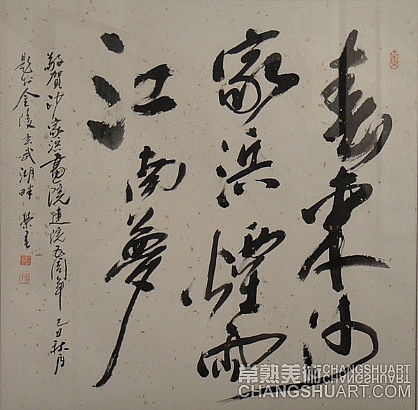 春來沙
家浜煙雨
江南夢
敬賀沙家浜書院建院五周年 己丑秋月
題於金陵玄武湖畔
常熟美術 CHANGSHUART
CHANGSHUART.COM